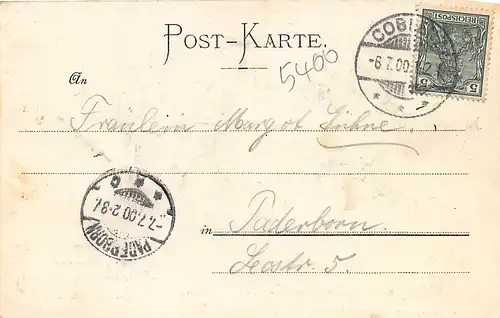 POST-KARTE.
5400
An
Fräulein Margot Lühne,
in Paderborn.
Leostr. 5.
-6.7.00
REICHSPOST
5 5
PADERBORN
-7.7.00.2-3